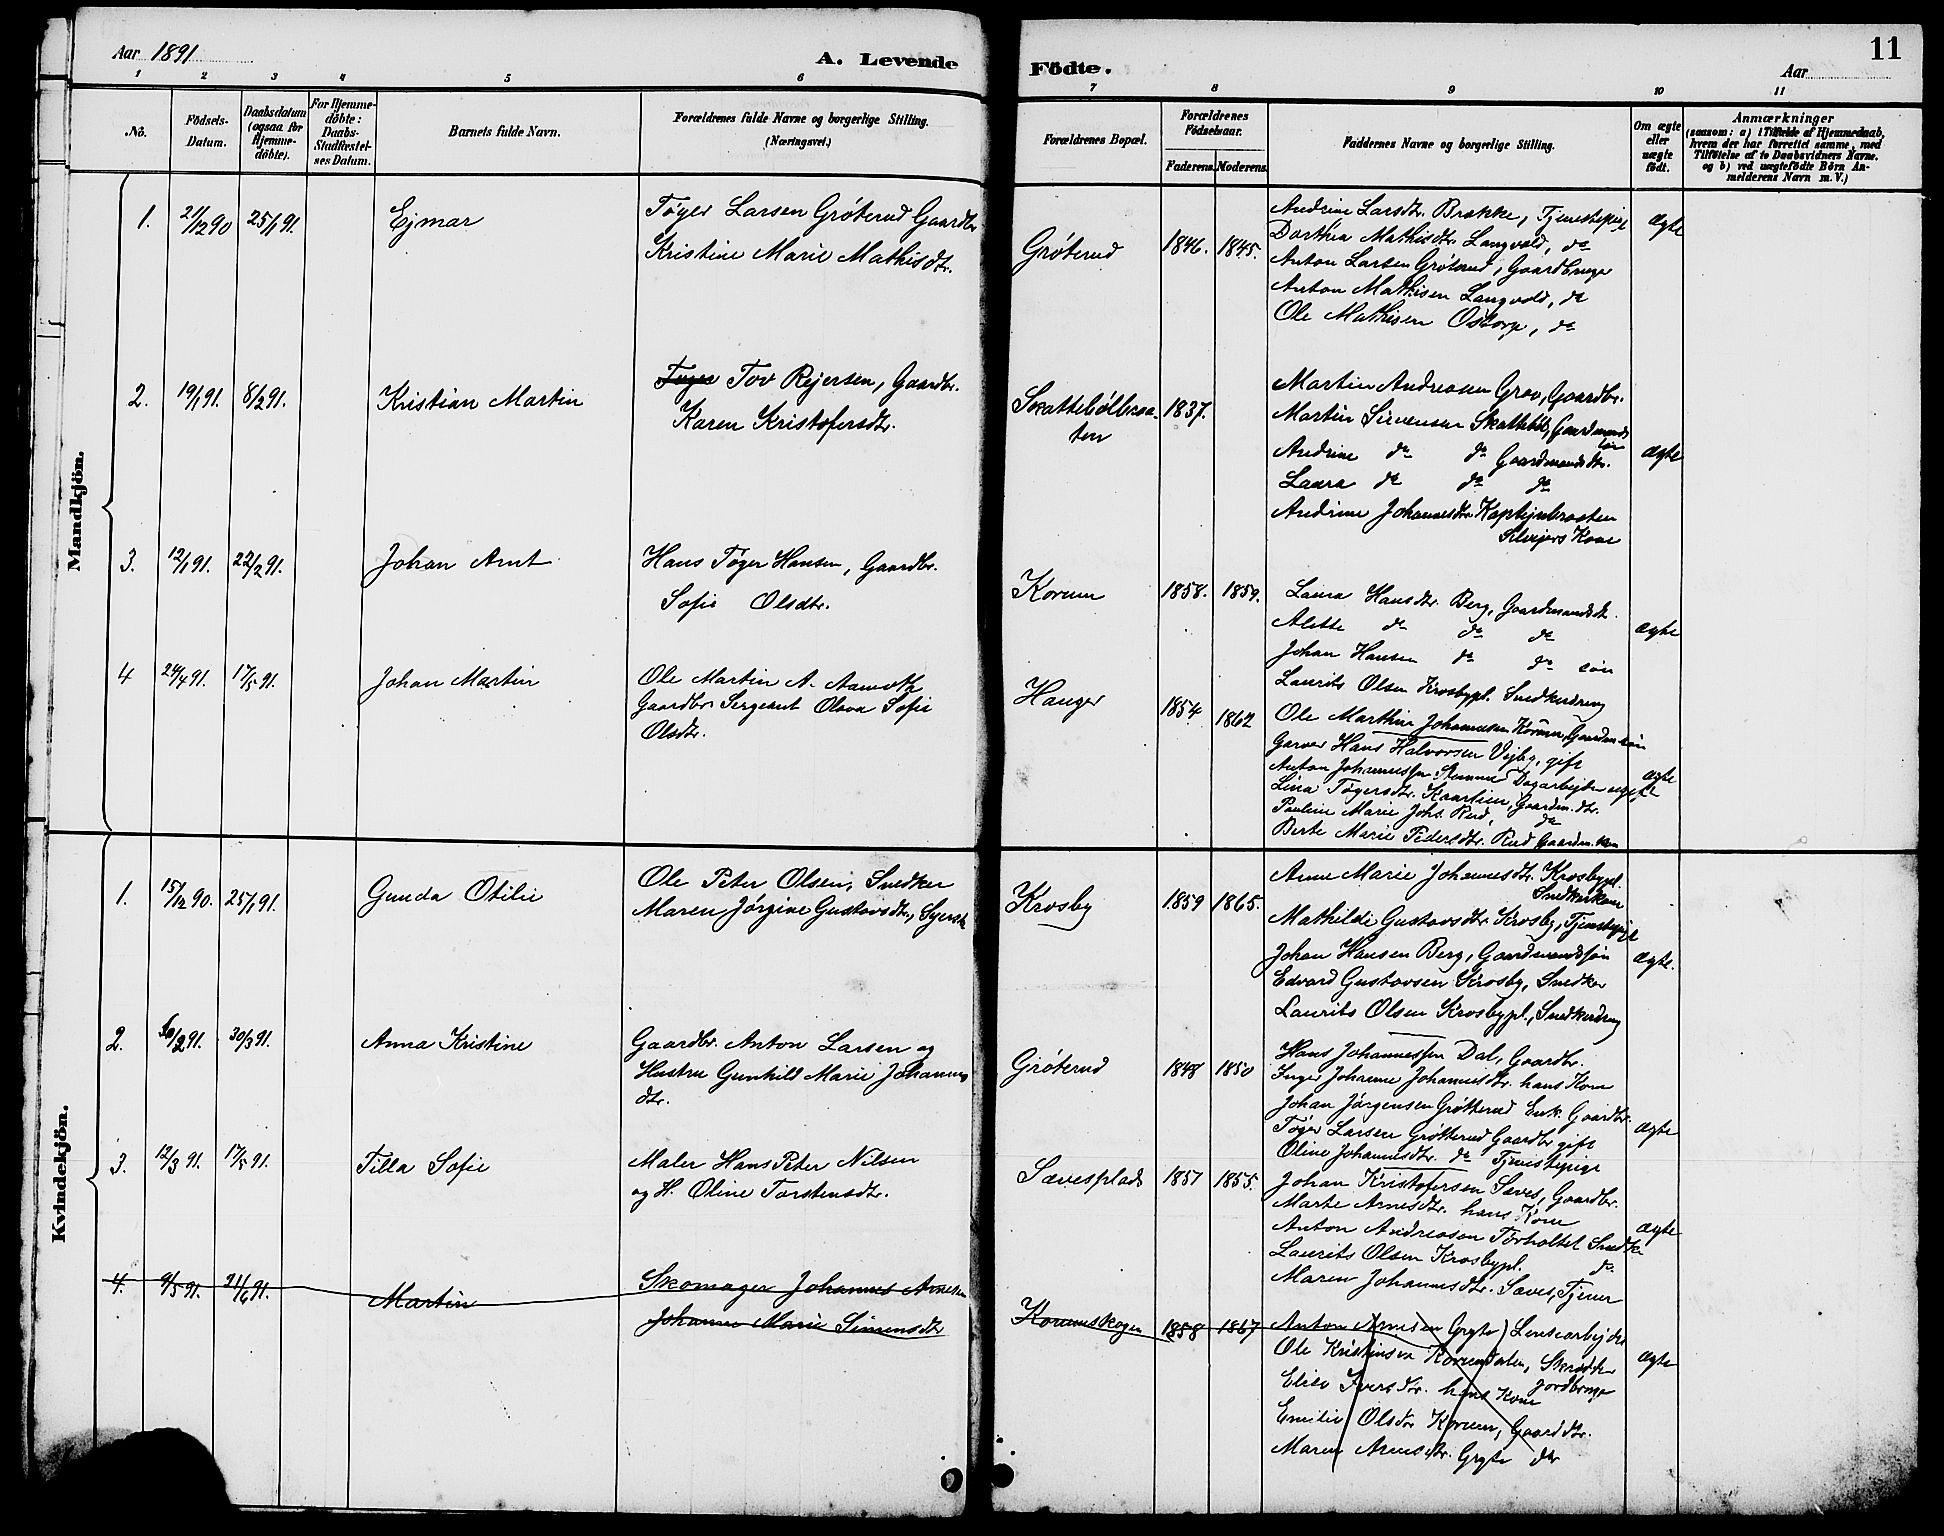 Aar 1891
A. Levende
Födte.
Aar
11
1 2 3 4 5 6 7 8 9 10 11
No.
Födsels-
Datum.
Daabsdatum
(ogsaa for
Hjemme-
döbte).
For Hjemme-
döbte:
Daabs-
Stadfæstel-
ses Datum.
Barnets fulde Navn.
Forældrenes fulde Navne og borgerlige Stilling.
(Næringsvei.)
Forældrenes Bopæl.
Forældrenes
Födselsaar.
Faderens. Moderens.
Faddernes Navne og borgerlige Stilling.
Om ægte
eller
uægte
födt.
Anmærkninger
(saasom: a) i Tilfælde af Hjemmedaab,
hvem der har forrettet samme, med
Tilföielse af to Daabsvidners Navne,
og b) ved uægtefödte Börn An-
melderens Navn m. V.)
Mandkjön.
1. 21/12 90 25/1 91. Ejmar
Tøger Larsen Grøterud Gaardbr.
Kristine Marie Mathisdtr.
Grøterud 1846. 1845.
Andrine Larsdtr. Brække, Tjenestepige
Dorthea Mathisdtr. Langvold, do
Anton Larsen Grøterud, Gaardbruger
Anton Mathisen Langvold, do
Ole Mathisen Ostorp, do
Ægte
2. 19/1 91. 8/2 91. Kristian Martin
Tøger Tov Rejersen, Gaardbr.
Karen Kristofersdtr.
Skattebølbraa-
ten
1837.
Martin Andreasen Grav, Gaardbr.
Martin Simensen Skattebøl, Gaardmands
søn
Andrine do do Gaardmandsdtr.
Laura do do do
Andrine Johannesdtr. Kaptejnbraaten
Kone
Ægte
3. 12/1 91. 22/2 91. Johan Arnt
Hans Tøger Hansen, Gaardbr.
Sofie Olsdtr.
Korum 1858. 1859.
Laura Hansdtr. Berg, Gaardmandsdtr.
Alette do do do
Johan Hansen do do søn
Laurits Olsen Krosbypl. Snedkerdreng
Ægte
4 24/4 91. 17/5 91. Johan Martin
Ole Martin A. Aamoth
Gaardbr. Sergeant Olava Sofie
Olsdtr.
Hauger 1854 1862
Ole Marthin Johannesen Korum, Gaardm.søn
Garver Hans Halvorsen Vigby, gift
Anton Johannessen Dagarbejder ugift
Lina Tøgersdtr. Kaartien, Gaardm.dtr.
Pauline Marie Johs. Rud, do
Berte Marie Pedersdtr. Rud Gaardm.kon
Ægte
Kvindekjön.
1. 15/12 90. 25/1 91. Gunda Otilie
Ole Peter Olsen, Snedker
Maren Jørgine Gustavsdtr., Syerske
Krosby 1859 1865.
Anne Marie Johannesdtr. Krosbypl.
Snedkerkone
Mathilde Gustavsdtr. Krosby, Tjenestepige
Johan Hansen Berg, Gaardmandsøn
Edvard Gustavsen Krosby, Snedker
Laurits Olsen Krosbypl., Snedkerdreng
Ægte.
2. 10/2 91. 30/3 91. Anna Kristine
Gaardbr. Anton Larsen og
Hustru Gunhild Marie Johannes
dtr.
Grøterud 1848 1850
Hans Johannessen Dal, Gaardbr.
Inger Johanne Johannesdtr. hans Kone
Johan Jørgensen Grøtterud Enk. Gaardbr.
Tøger Larsen Grøtterud Gaardbr gift
Oline Johannesdtr. do Tjenestepige
Ægte
3. 12/3 91. 17/5 91. Tilla Sofie
Maler Hans Peter Nilsen
og H. Oline Torstensdtr.
Sævesplads 1857 1855.
Johan Kristofersen Sæves, Gaardbr.
Marte Arnesdtr. hans Kone
Anton Andreasen Torholtet Snedk.
Laurits Olsen Krosbypl. do
Maren Johannesdtr. Sæves, Tjener
Ægte
4. 9/5 91. 21/6 91. Martin
Skomager Johannes Arnesen
Johanne Marie Simensdtr
Korumskogen 1858 1867
Anton Arnesen Gryte) Løsearbejder
Ole Kristensen Korumdalen, Skrædder
Jordbruger
Elise Iversdtr. hans Kone
Emilie Olsdtr Korum, Gaarddtr.
Maren Arnesdtr. Gryte do
Ægte